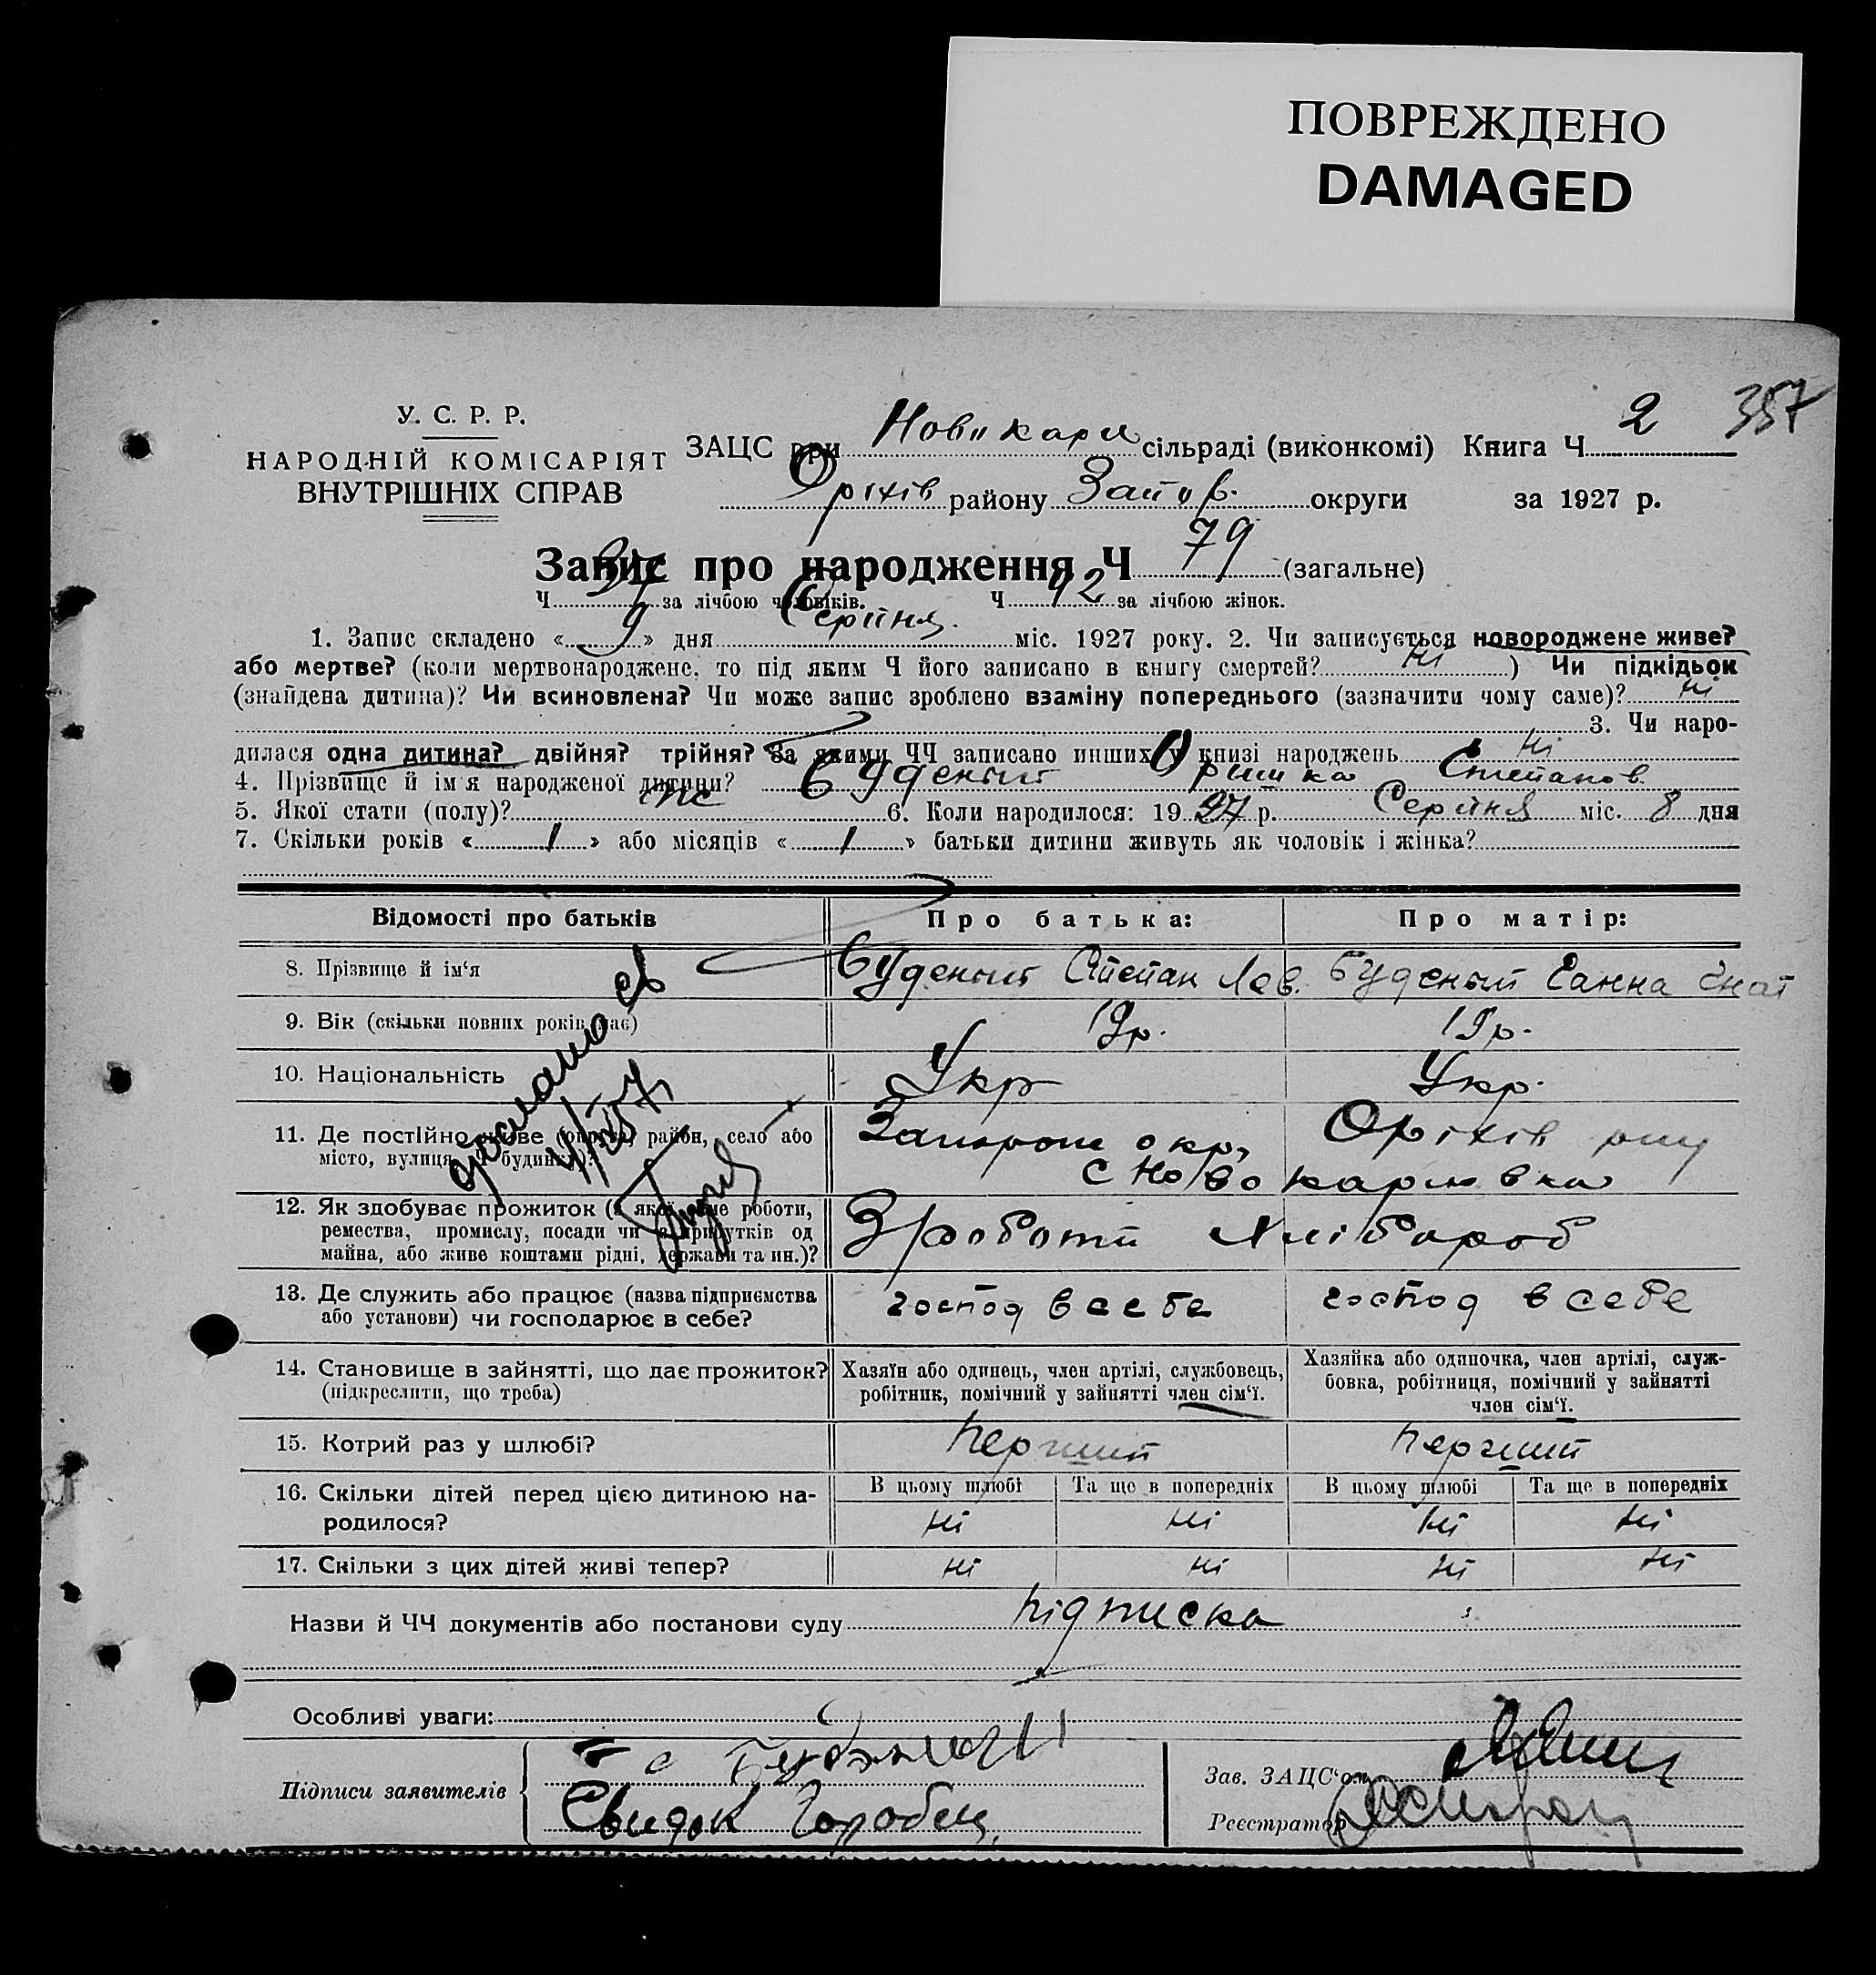 ПОВРЕЖДЕНО
DAMAGED
357
У. С. Р. Р.
НАРОДНІЙ КОМІСАРІЯТ
ВНУТРІШНІХ СПРАВ
ЗАЦС при Новокарл сільраді (виконкомі) Книга Ч 2
Оріхів району Запор. округи за 1927 р.
Запис про народження Ч 79 (загальне)
Ч 37 за лічбою чоловіків. Ч 42 за лічбою жінок.
1. Запис складено «9» дня Серпня міс. 1927 року. 2. Чи записується новороджене живе?
або мертве? (коли мертвонароджене, то під яким Ч його записано в книгу смертей? Ні ) Чи підкідьок
(знайдена дитина)? Чи всиновлена? Чи може запис зроблено взаміну попереднього (зазначити чому саме)? Ні
3. Чи наро-
дилася одна дитина? двійня? трійня? За якими ЧЧ записано инших у книзі народжень Ні
4. Прізвище й ім'я народженої дитини? Буденый Оришка Степанов
5. Якої стати (полу)? 6. Коли народилося: 1927 р. Серпня міс. 8 дня
7. Скільки років « / » або місяців « / » батьки дитини живуть як чоловік і жінка?
Відомості про батьків Про батька: Про матір:
8. Прізвище й ім'я Буденый Степан Лав. Буденый Ганна Гнат
9. Вік (скільки повних років має) 19р. 19р.
10. Національність Укр Укр.
11. Де постійно живе (округа, район, село або
місто, вулиця, Ч будинку)? Запорож окр, Оріхів рну
с Новокарловка
12. Як здобуває прожиток (з якої саме роботи,
ремества, промислу, посади чи з прибутків од
майна, або живе коштами рідні, держави та ин.)? З роботи Хлібороб
13. Де служить або працює (назва підприємства
або установи) чи господарює в себе? господ в себе господ в себе
14. Становище в зайнятті, що дає прожиток?
(підкреслити, що треба)
Хазяїн або одинець, член артілі, службовець,
робітник, помічний у зайнятті член сім'ї.
Хазяйка або одиночка, член артілі, служ-
бовка, робітниця, помічний у зайнятті
член сім'ї.
15. Котрий раз у шлюбі? перший перший
16. Скільки дітей перед цією дитиною на-
родилося?
В цьому шлюбі Та ще в попередніх В цьому шлюбі Та ще в попередніх
Ні Ні Ні Ні
17. Скільки з цих дітей живі тепер? Ні Ні Ні Ні
Назви й ЧЧ документів або постанови суду підписка
Особливі уваги:
Підписи заявителів
Свидок Горобец
Зав. ЗАЦС'ом
Реєстратор